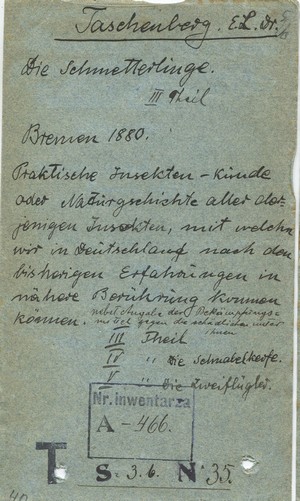 Taschenberg. E.L. Dr.
Die Schmetterlinge.
III Theil
Bremen 1880.
Praktische Insekten-kunde
oder Naturgschichte aller der-
jenigen Insekten, mit welchen
wir in Deutschland nach den
bisherigen Erfahrungen in
nähere Berührung kommen
können. nebst Angabe der Bekämpfungs-
mittel gegen die schädlichen unter
ihnen
III Theil
IV " Die Schnabelkerfe.
V " Die Zweiflügler.
Nr. inwentarza
A - 466.
T S. 3.6. N 35.
40